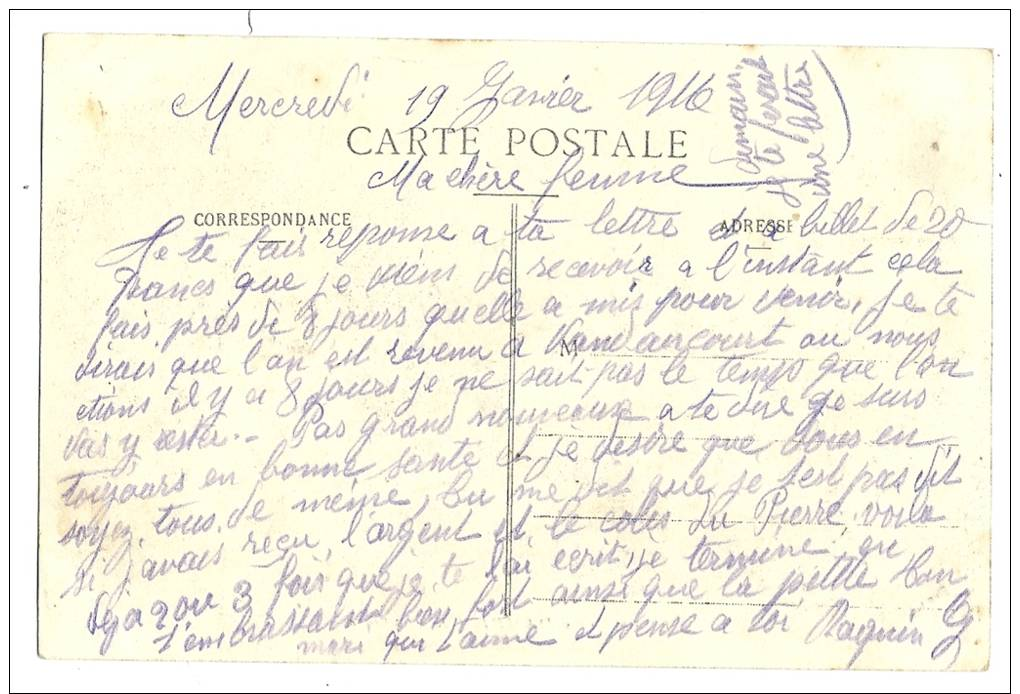 Mercredi 19 Janvier 1916
demain
je te ferais
une lettre
CARTE POSTALE
Ma chère femme
CORRESPONDANCE
ADRESSE
Je te fais reponse a ta lettre et a billet de 20
francs que je viens de recevoir a l'instant cela
fais près de 8 jours quelle a mis pour venir, je te
dirais que l'on est revenu a Vandancourt ou nous
M
etions il y a 8 jours je ne sait pas le temps que l'on
vas y rester. - Pas grand nouveaux a te dire je suis
toujours en bonne santé et je desire que vous en
soyez tous de même, tu me dit que je t'est pas dit
si j'avais reçu l'argent et le colis du Pierre, voila
deja 2 ou 3 fois que je te l'ai ecrit, je termine en
t'embrassant bien fort ainsi que la petite
mari qui t'aime et pense a toi Raguin G